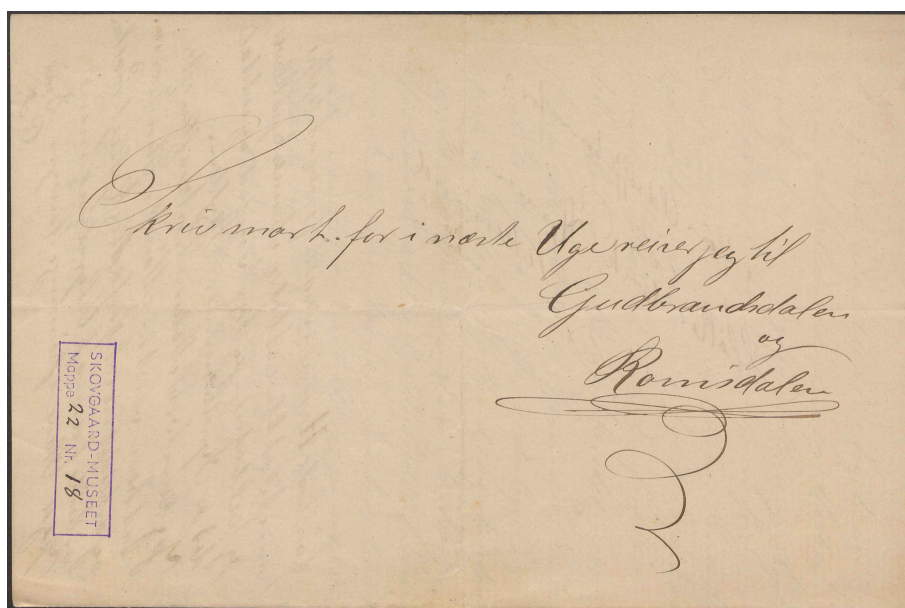 Skriv snart. for i næste Uge reiser jeg til
Gudbrandsdalen
og
Romsdalen
SKOVGAARD-MUSEET
Mappe 22 Nr. 18